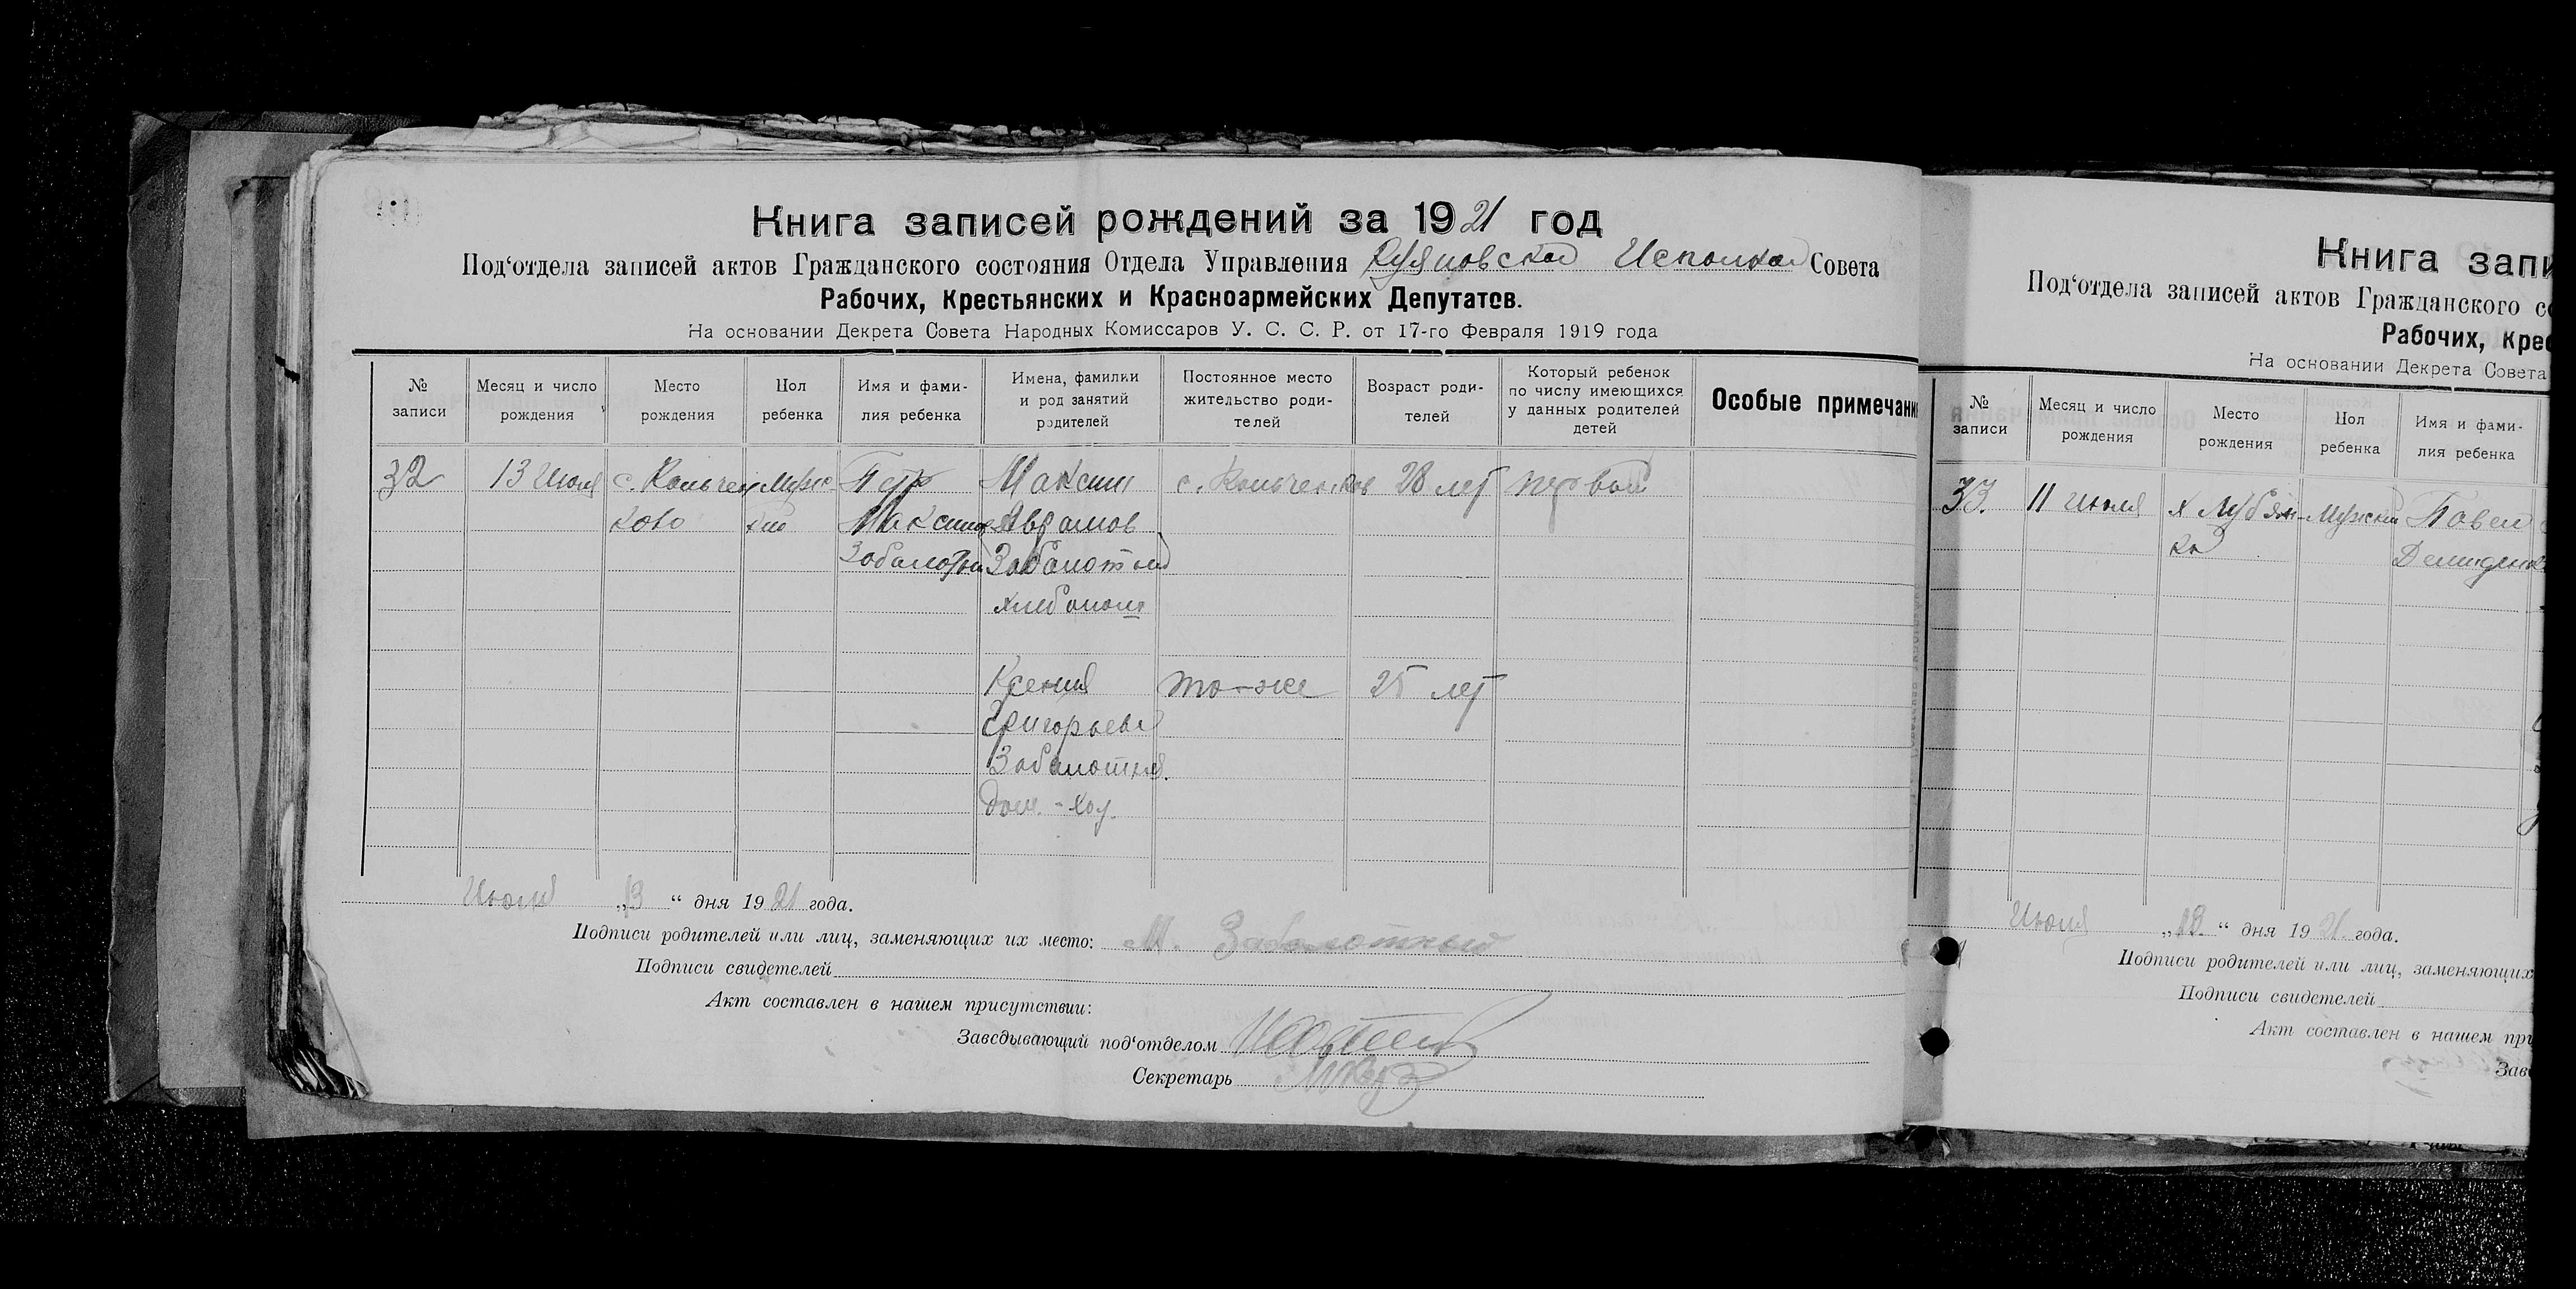 Книга записей рождений за 1921 год
Под‘отдела записей актов Гражданского состояния Отдела Управления Исполком Совета
Рабочих, Крестьянских и Красноармейских Депутатов.
На основании Декрета Совета Народных Комиссаров У. С. С. Р. от 17-го Февраля 1919 года
№ записи
Месяц и число рождения
Место рождения
Пол ребенка
Имя и фами-
лия ребенка
Имена, фамилии
и род занятий
родителей
Постоянное место
жительство роди-
телей
Возраст роди-
телей
Который ребенок
по числу имеющихся
у данных родителей
детей
Особые примечани
32
13 Июля
с. Кольчен
ково
Мужс-
кий
Петр
Максимов
Заболотный
Максим
Аврамов
Заболотный
хлебопаш
с. Кольченков
28 лет
первый
Ксения
Григорьева
Заболотная.
дом.-хоз.
то-же
25 лет
Июля „13“ дня 1921 года.
Подписи родителей или лиц, заменяющих их место: М. Заболотный
Подписи свидетелей
Акт составлен в нашем присутствии:
Заведывающий под‘отделом
Секретарь
Книга запи
Под‘отдела записей актов Гражданского со
Рабочих, Крес
На основании Декрета Совета
№ записи
Месяц и число
рождения
Место
рождения
Пол
ребенка
Имя и фами-
лия ребенка
33.
11 июля
х Лубян-
ка
Мужский
Павел
Демиденко
Июля „13.“ дня 1921. года.
Подписи родителей или лиц, заменяющих
Подписи свидетелей
Акт составлен в нашем при
Заве